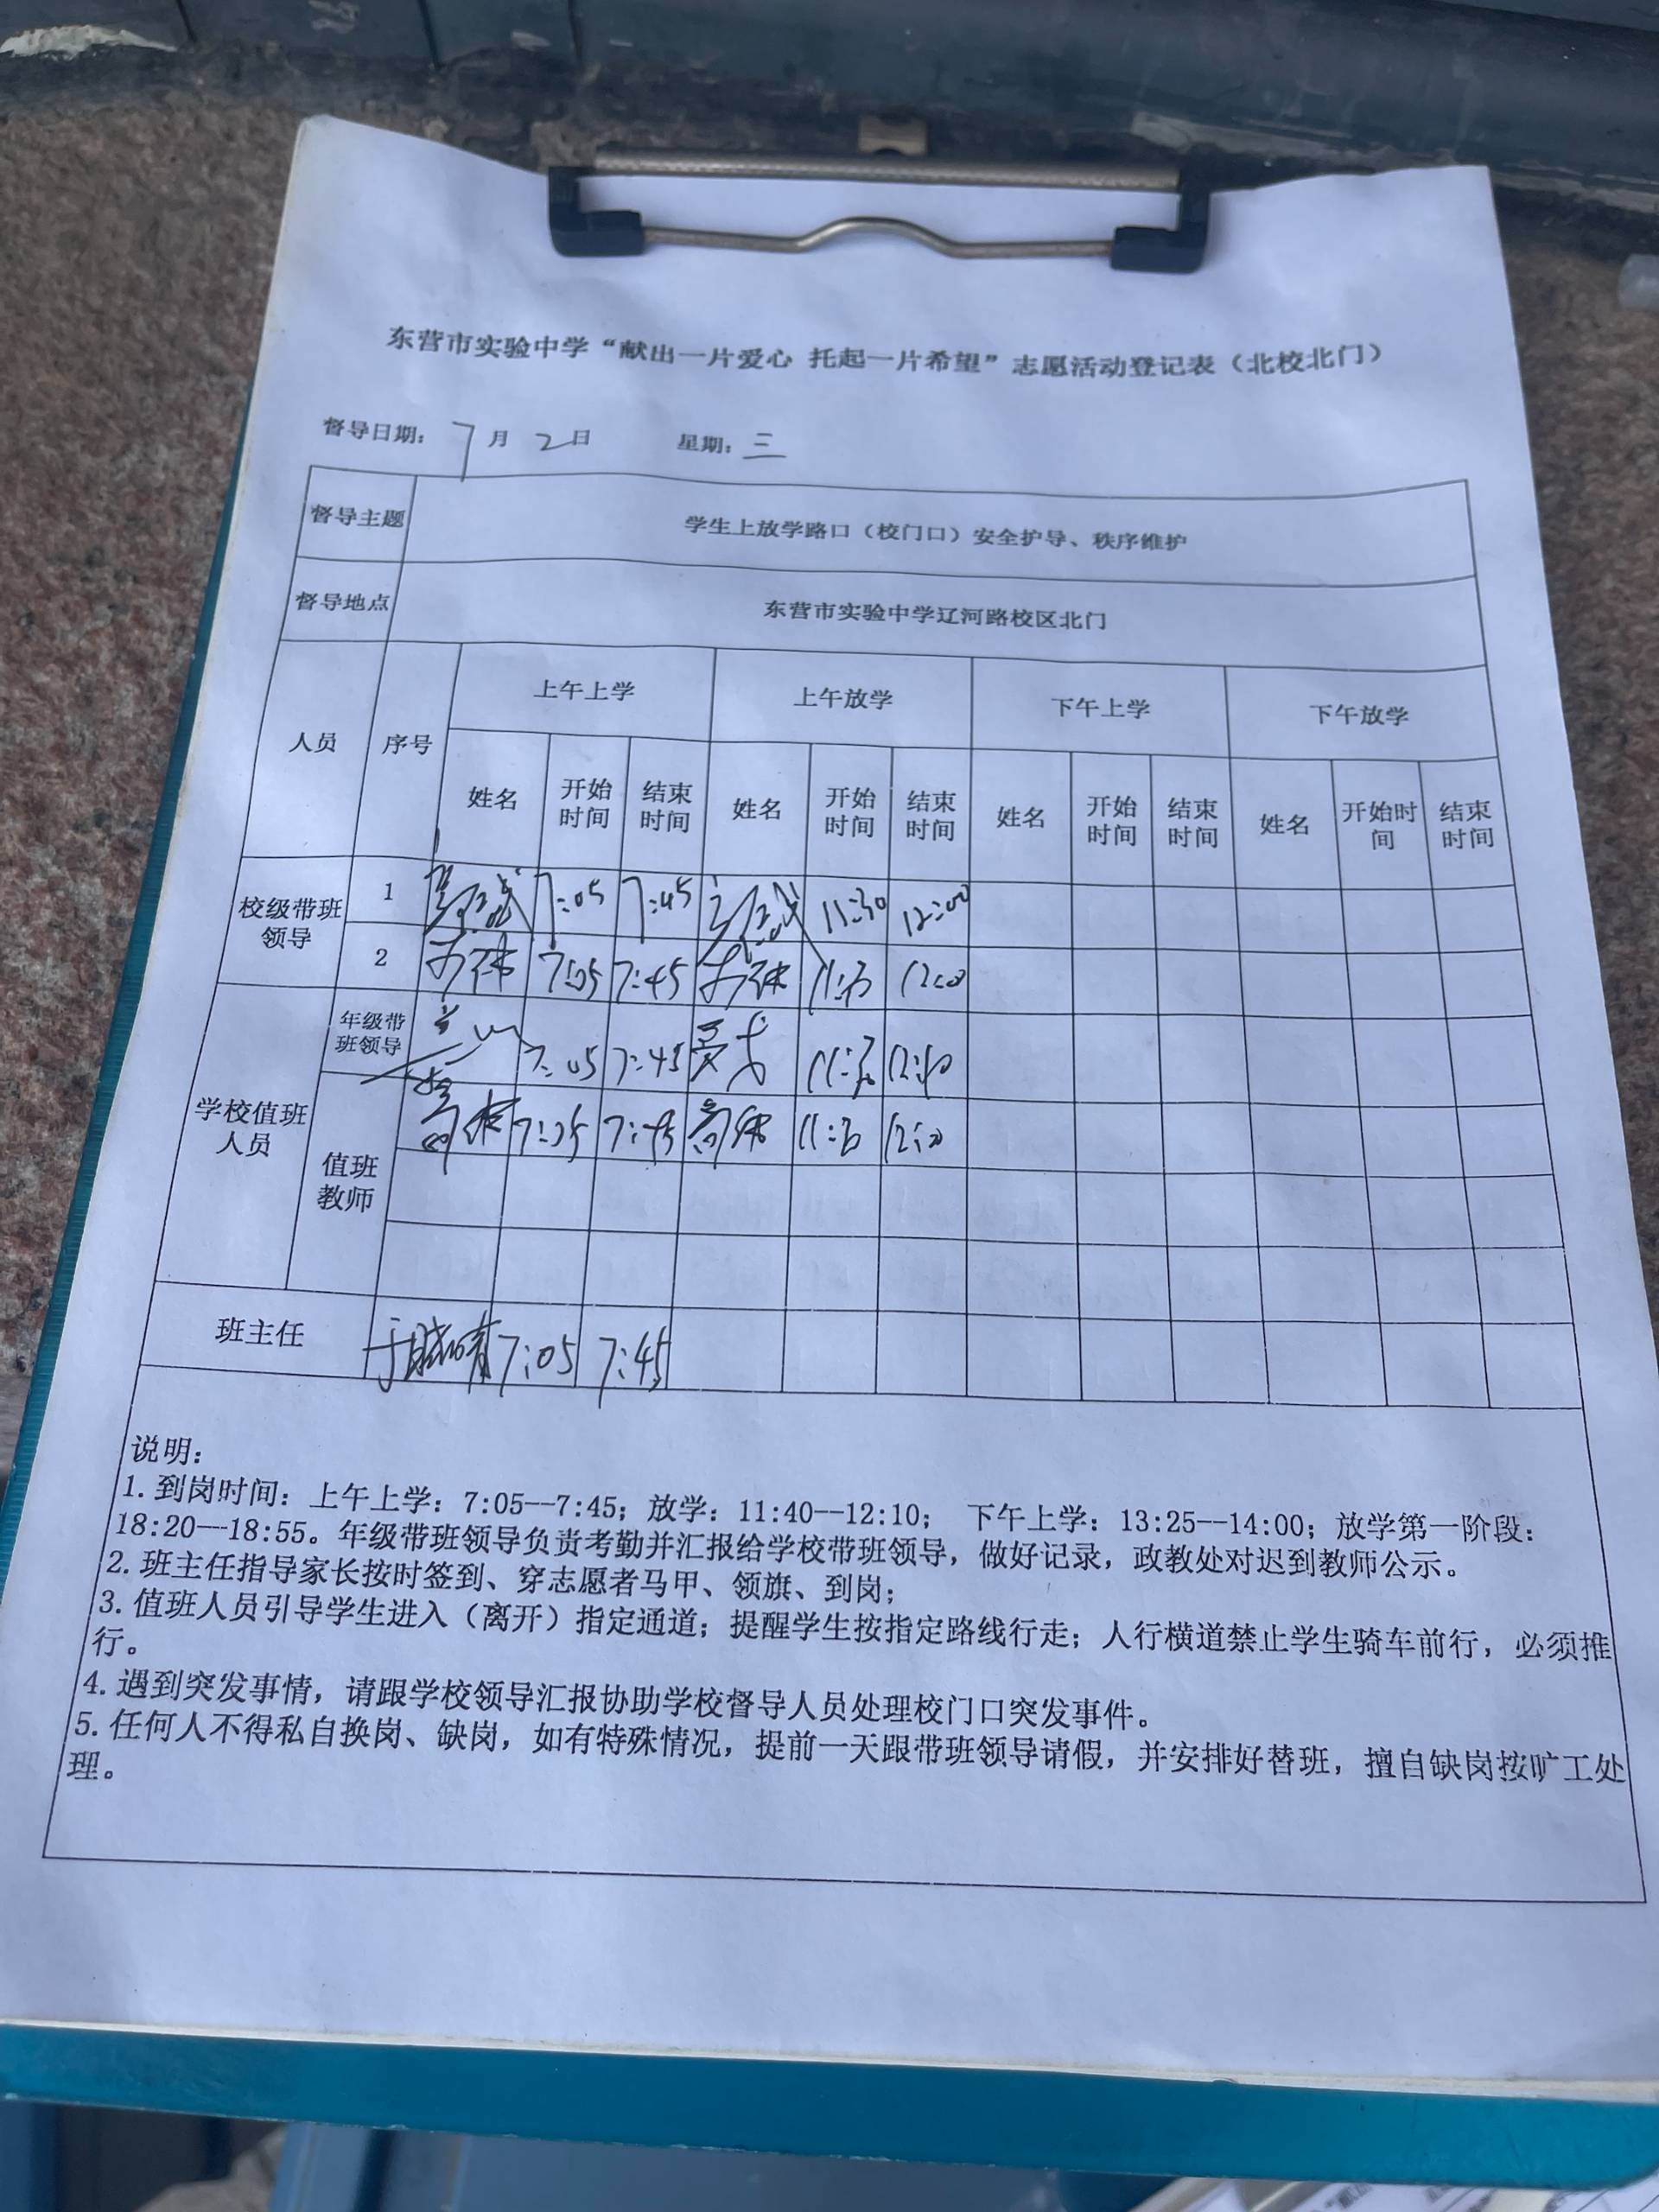 东营市实验中学“献出一片爱心 托起一片希望”志愿活动登记表（北校北门）
督导日期：7月2日 星期：三
督导主题 学生上放学路口（校门口）安全护导、秩序维护
督导地点 东营市实验中学辽河路校区北门
人员 序号 上午上学 上午放学 下午上学 下午放学
姓名 开始时间 结束时间 姓名 开始时间 结束时间 姓名 开始时间 结束时间 姓名 开始时间 结束时间
校级带班领导 1 7:05 7:45 11:30 12:00
2 7:05 7:45
学校值班人员 年级带班领导 7:05 7:45
值班教师
班主任 于晓晴 7:05 7:45
说明：
1. 到岗时间：上午上学：7:05--7:45；放学：11:40--12:10； 下午上学：13:25--14:00；放学第一阶段：
18:20--18:55。年级带班领导负责考勤并汇报给学校带班领导，做好记录，政教处对迟到教师公示。
2. 班主任指导家长按时签到、穿志愿者马甲、领旗、到岗；
3. 值班人员引导学生进入（离开）指定通道；提醒学生按指定路线行走；人行横道禁止学生骑车前行，必须推
行。
4. 遇到突发事情，请跟学校领导汇报协助学校督导人员处理校门口突发事件。
5. 任何人不得私自换岗、缺岗，如有特殊情况，提前一天跟带班领导请假，并安排好替班，擅自缺岗按旷工处
理。